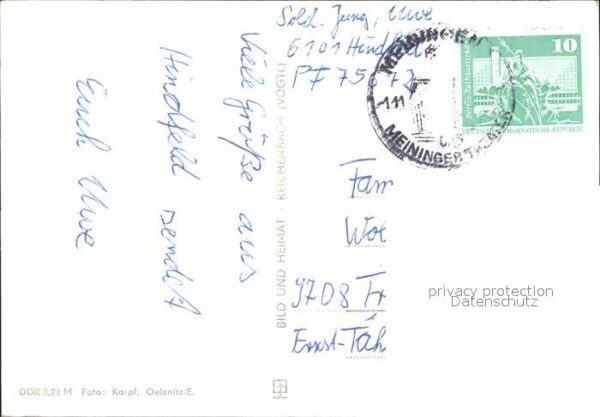 Sold. Jung, Uwe
6101 Hindfeld
PF 75 72
MEININGEN
-1.11
MEININGER
10
DEUTSCHE DEMOKRATISCHE REPUBLIK
Viele Grüße aus
Hindfeld sendet
Euch Uwe
BILD UND HEIMAT · REICHENBACH (VOGTL)
Fam
Wol
9708 Tr
Ernst-Täh
privacy protection
Datenschutz
DDR 0,20 M Foto: Karpf, Oelsnitz/E.